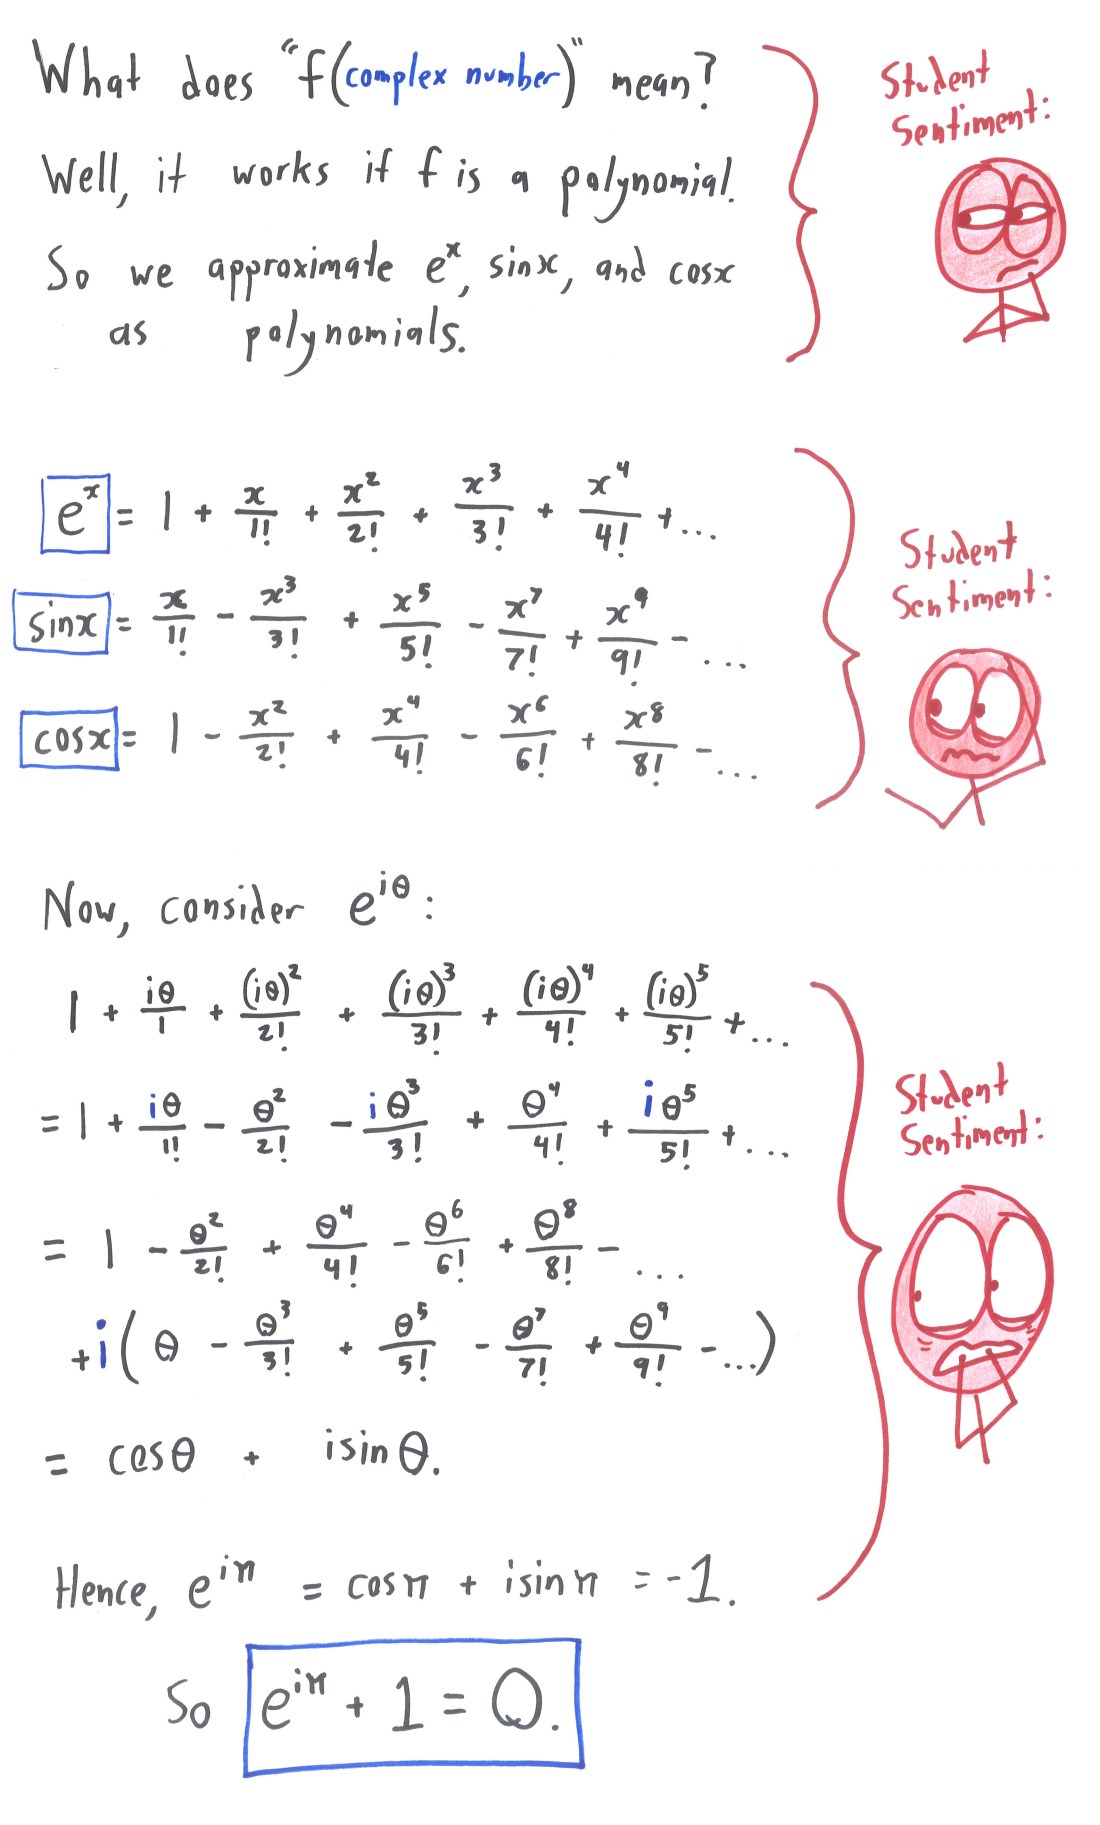 What does "f(complex number)" mean?
Well, it works if f is a polynomial.
So we approximate eˣ, sinx, and cosx
as polynomials.
Student
Sentiment:
eˣ = 1 + x/1! + x²/2! + x³/3! + x⁴/4! + ...
sinx = x/1! - x³/3! + x⁵/5! - x⁷/7! + x⁹/9! - ...
cosx = 1 - x²/2! + x⁴/4! - x⁶/6! + x⁸/8! - ...
Student
Sentiment:
Now, consider e^(iθ):
1 + iθ/1 + (iθ)²/2! + (iθ)³/3! + (iθ)⁴/4! + (iθ)⁵/5! + ...
= 1 + iθ/1! - θ²/2! - iθ³/3! + θ⁴/4! + iθ⁵/5! + ...
= 1 - θ²/2! + θ⁴/4! - θ⁶/6! + θ⁸/8! - ...
+i(θ - θ³/3! + θ⁵/5! - θ⁷/7! + θ⁹/9! - ...)
= cosθ + isinθ.
Student
Sentiment:
Hence, e^(iπ) = cosπ + isinπ = -1.
So e^(iπ) + 1 = 0.